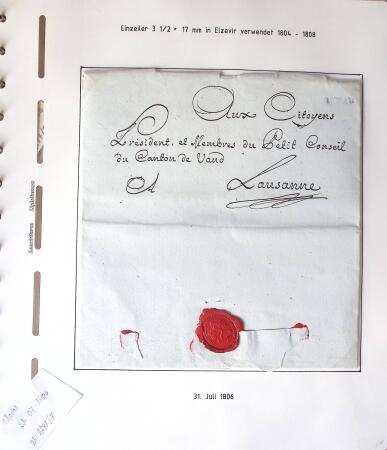 Einzeiler 3 1/2 * 17 mm in Elzevir verwendet 1804 - 1808
Aux Citoyens
Président, et Membres du Petit Conseil
du Canton de Vaud
A Lausanne
31. Juli 1806
Leuchtturm Lighthouse